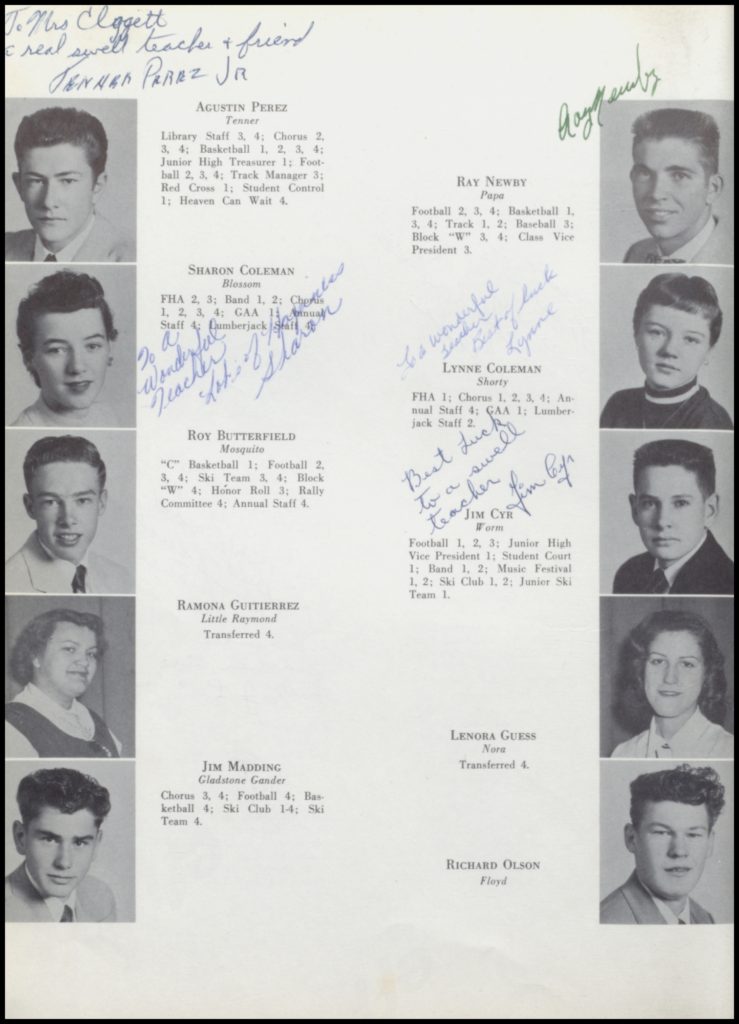 To Mrs Claggett
a real swell teacher & friend
Tenner Perez Jr
AGUSTIN PEREZ
Tenner
Library Staff 3, 4; Chorus 2,
3, 4; Basketball 1, 2, 3, 4;
Junior High Treasurer 1; Foot-
ball 2, 3, 4; Track Manager 3;
Red Cross 1; Student Control
1; Heaven Can Wait 4.
SHARON COLEMAN
Blossom
FHA 2, 3; Band 1, 2; Chorus
1, 2, 3, 4; GAA 1; Annual
Staff 4; Lumberjack Staff 4.
To a
Wonderful
Teacher
Lots of Happiness
Sharon
ROY BUTTERFIELD
Mosquito
"C" Basketball 1; Football 2,
3, 4; Ski Team 3, 4; Block
"W" 4; Honor Roll 3; Rally
Committee 4; Annual Staff 4.
RAMONA GUITIERREZ
Little Raymond
Transferred 4.
JIM MADDING
Gladstone Gander
Chorus 3, 4; Football 4; Bas-
ketball 4; Ski Club 1-4; Ski
Team 4.
Ray Newby
RAY NEWBY
Papa
Football 2, 3, 4; Basketball 1,
3, 4; Track 1, 2; Baseball 3;
Block "W" 3, 4; Class Vice
President 3.
To a wonderful
teacher
Best of luck
Lynne
LYNNE COLEMAN
Shorty
FHA 1; Chorus 1, 2, 3, 4; An-
nual Staff 4; GAA 1; Lumber-
jack Staff 2.
Best Luck
to a swell
teacher Jim Cyr
JIM CYR
Worm
Football 1, 2, 3; Junior High
Vice President 1; Student Court
1; Band 1, 2; Music Festival
1, 2; Ski Club 1, 2; Junior Ski
Team 1.
LENORA GUESS
Nora
Transferred 4.
RICHARD OLSON
Floyd